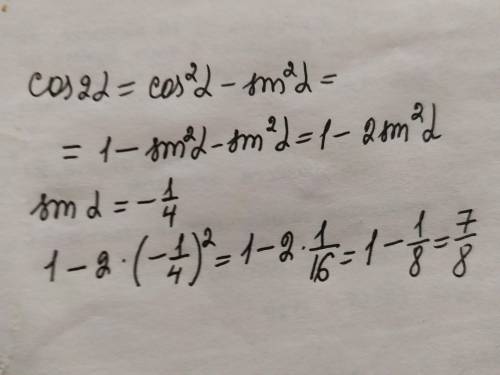 cos2α = cos²α - sin²α =
= 1 - sin²α - sin²α = 1 - 2sin²α
sin α = -1/4
1 - 2 · (-1/4)² = 1 - 2 · 1/16 = 1 - 1/8 = 7/8